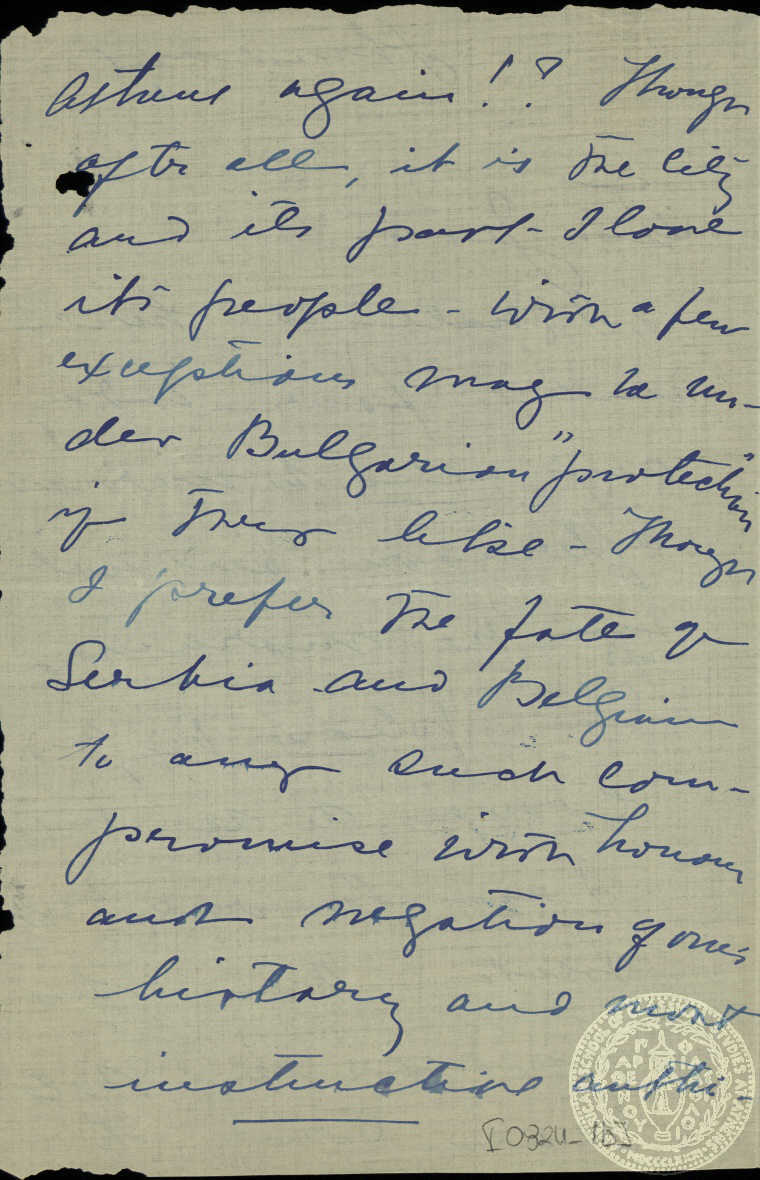 Athens again!? Though
after all, it is the City
and its part - I love
its people - with a few
exceptions may be un-
der Bulgarian "protection"
if they like - Though
I prefer the fate of
Serbia and Belgium
to any such com-
promise with honour
and negation of one's
history and most
instinctive anthi-
[0324-1b]